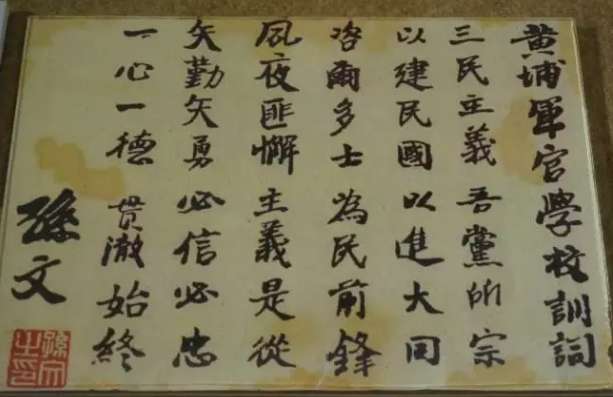 黄埔軍官學校訓詞
三民主義吾黨所宗
以建民國以進大同
咨爾多士為民前鋒
夙夜匪懈主義是從
矢勤矢勇必信必忠
一心一德貫澈始終
孫文
孫文之印